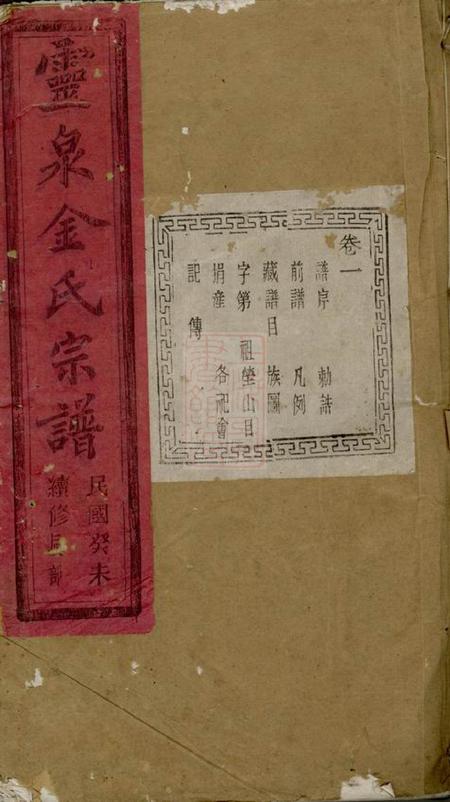 靈泉金氏宗譜
民國癸未
續修
卷一
譜序 勅誥
前譜 凡例
藏譜目 族圖
字第 祖塋山目
捐產 各祀會
記傳